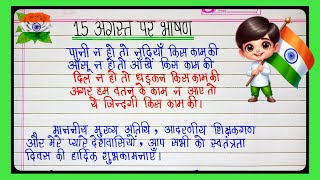 15 अगस्त पर भाषण
पानी न हो तो नदियाँ किस काम की
आँसू न हो तो आँखें किस काम की
दिल न हो तो धड़कन किस काम की
अगर हम वतन के काम न आए तो
ये जिन्दगी किस काम की।
माननीय मुख्य अतिथि, आदरणीय शिक्षकगण
और मेरे प्यारे देशवासियों, आप सभी को स्वतंत्रता
दिवस की हार्दिक शुभकामनाएँ।